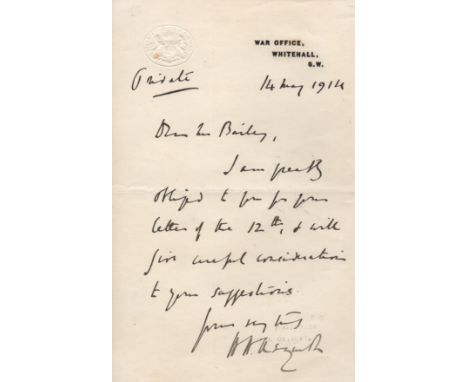 WAR OFFICE,
WHITEHALL,
S.W.
Private
14 May 1914
Dear Mr Bailey,
I am greatly
obliged to you for your
letter of the 12th, & will
give careful consideration
to your suggestions.
Yours very truly
H H Asquith